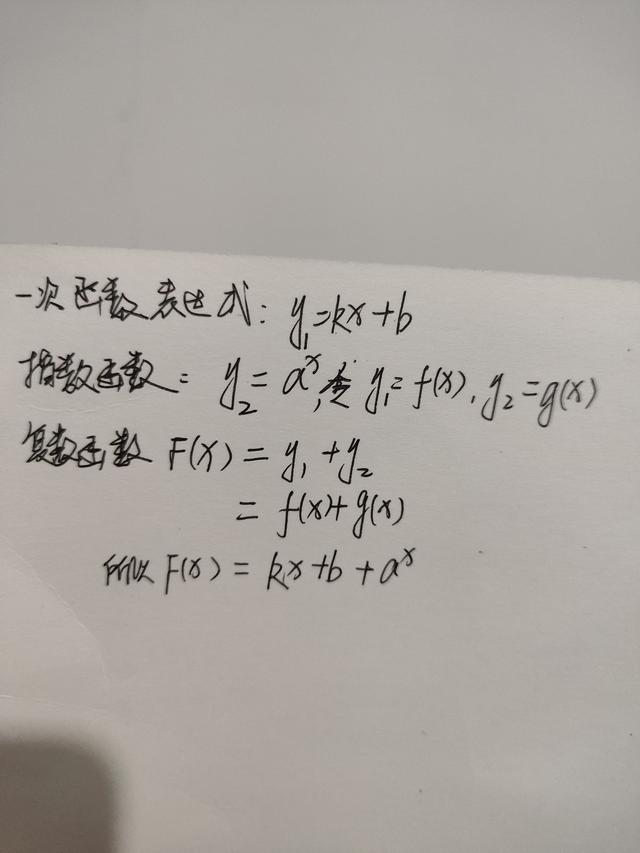 一次函数表达式: y₁=kx+b
指数函数: y₂=aˣ,令 y₁=f(x), y₂=g(x)
复数函数 F(x)=y₁+y₂
=f(x)+g(x)
所以 F(x)=kx+b+aˣ